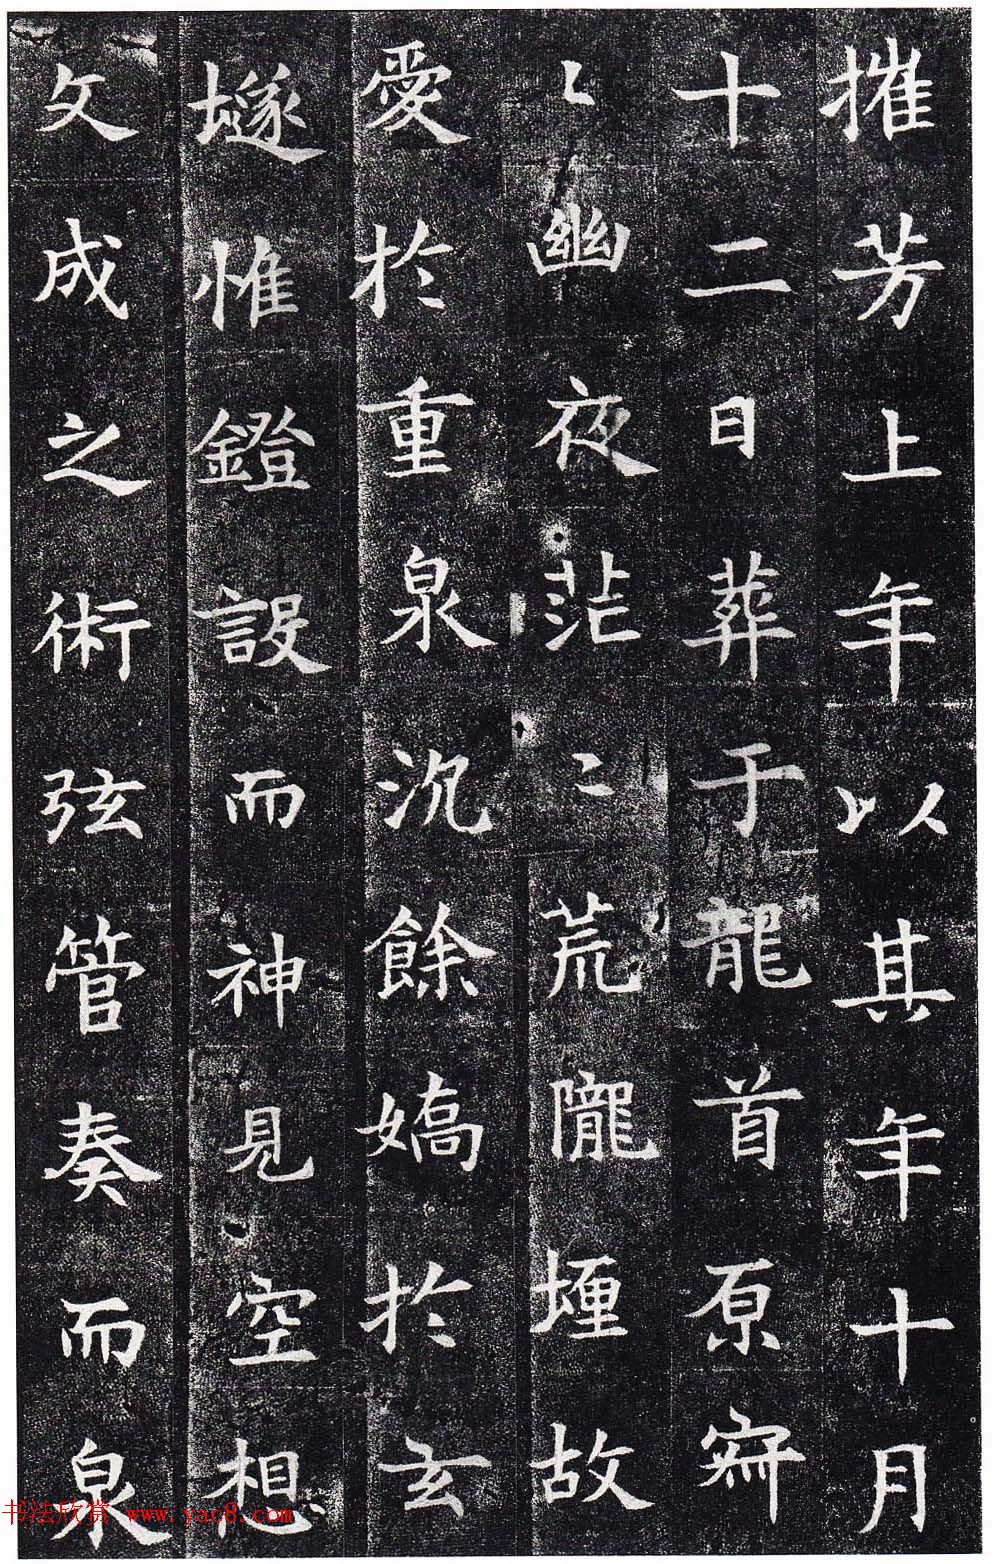 摧芳上年以其年十月
十二日葬于龍首原寂
〻幽夜茫〻荒隴埋故
愛於重泉沉餘嬌於玄
隧惟鐙設而神見空想
文成之術弦管奏而泉
书法欣赏 www.yac8.com